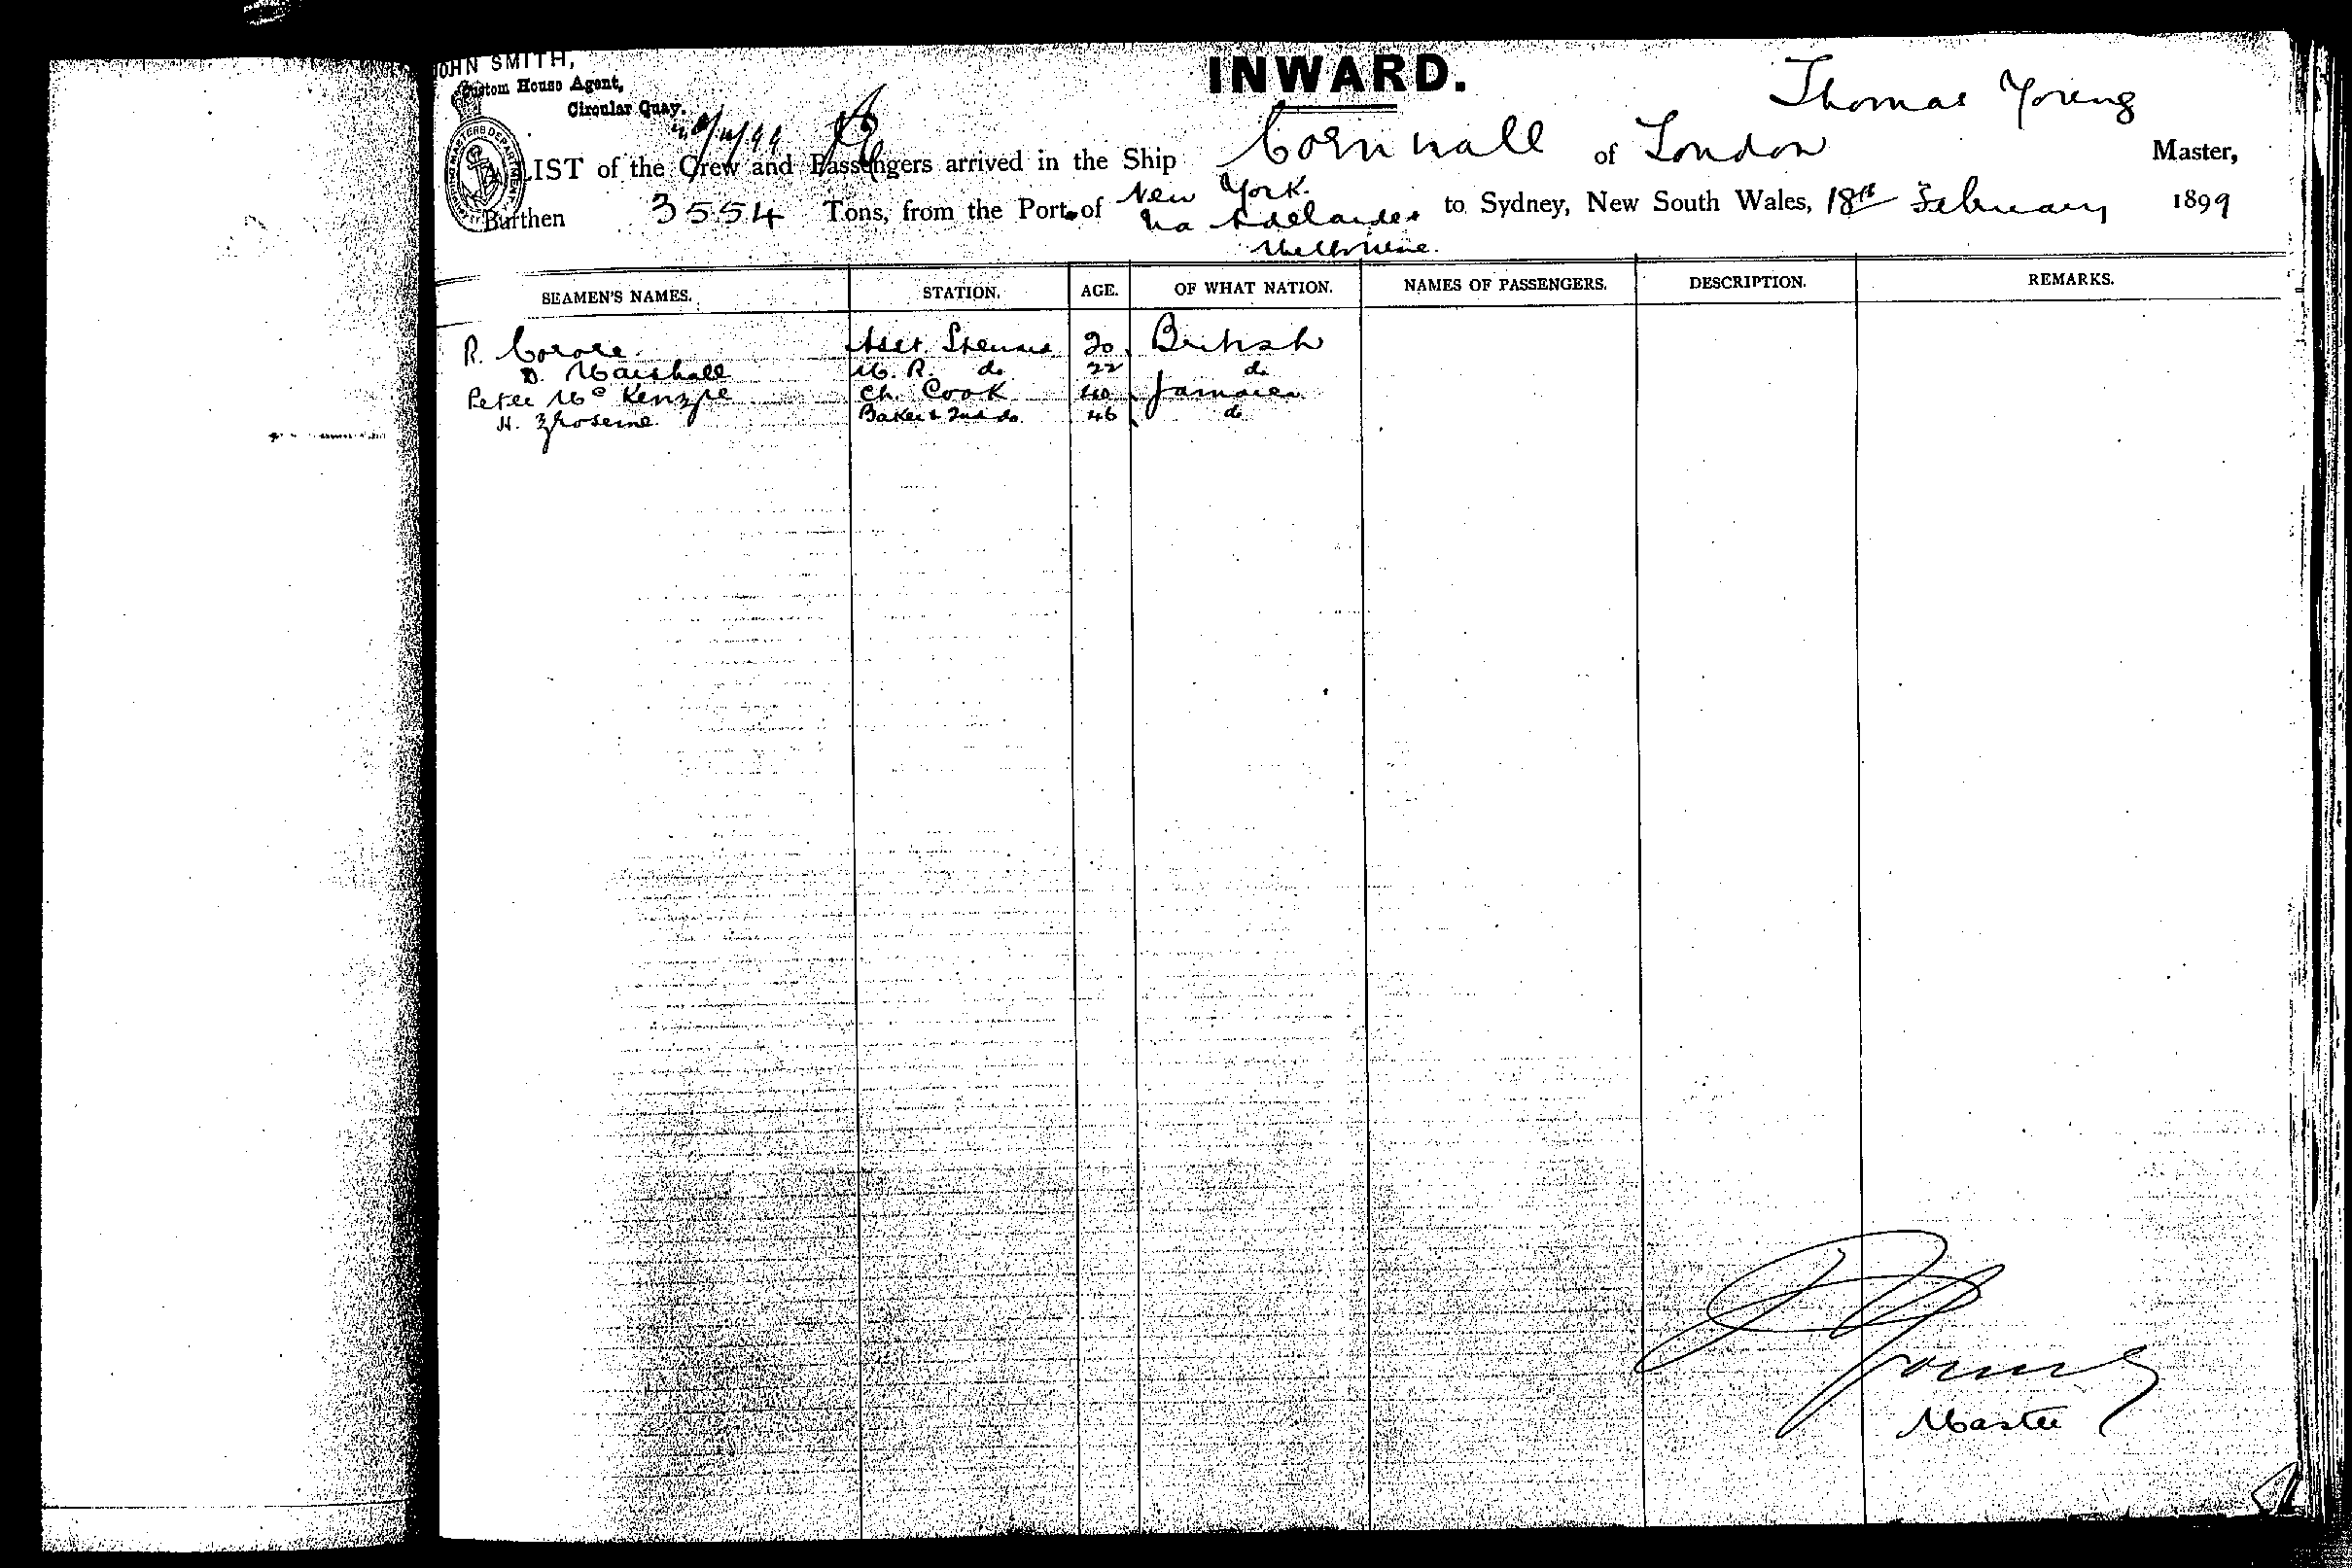 JOHN SMITH,
Custom House Agent,
Circular Quay.
INWARD.
Thomas Young
A LIST of the Crew and Passengers arrived in the Ship Cornwall of London Master,
Burthen 3554 Tons, from the Port of New York to Sydney, New South Wales, 18th February 1899
Via Adelaide &
Melbourne.
SEAMEN'S NAMES. STATION. AGE. OF WHAT NATION. NAMES OF PASSENGERS. DESCRIPTION. REMARKS.
R. Asst. Steward 20 British
D. Marshall M. R. do 22 do
Peter McKenzie Ch. Cook 40 Jamaica
H. Baker & 2nd do 46 do
Young
Master